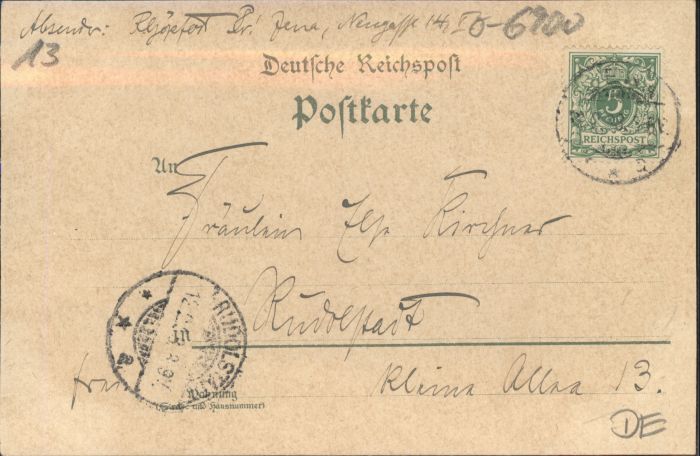 Absender: Pr. Jena, Neugasse 14, I
0-6900
13
Deutsche Reichspost
Postkarte
5
REICHSPOST
An
Fräulein Else Kirchner
in Rudolstadt
RUDOLST
a
kleine Allee 13.
Wohnung
(Straße und Hausnummer)
DE